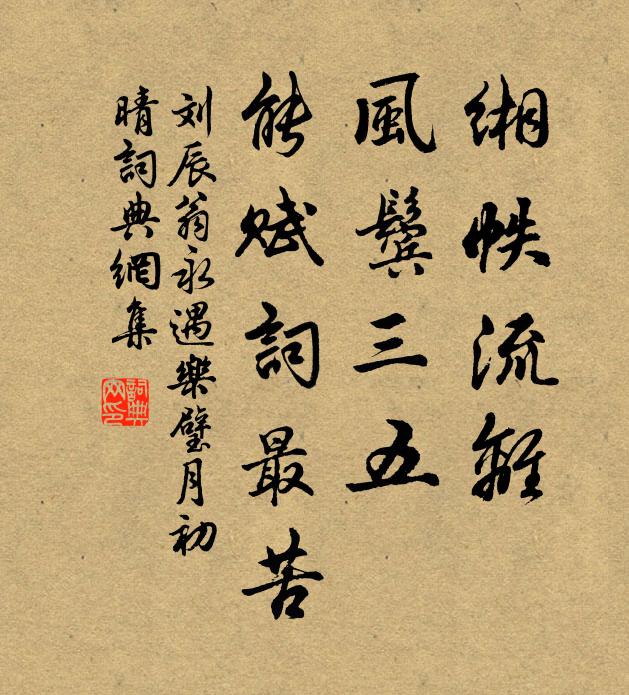 缃帙流離
風鬟三五
能賦詞最苦
刘辰翁永遇樂璧月初
晴詞典網集
詞典网印